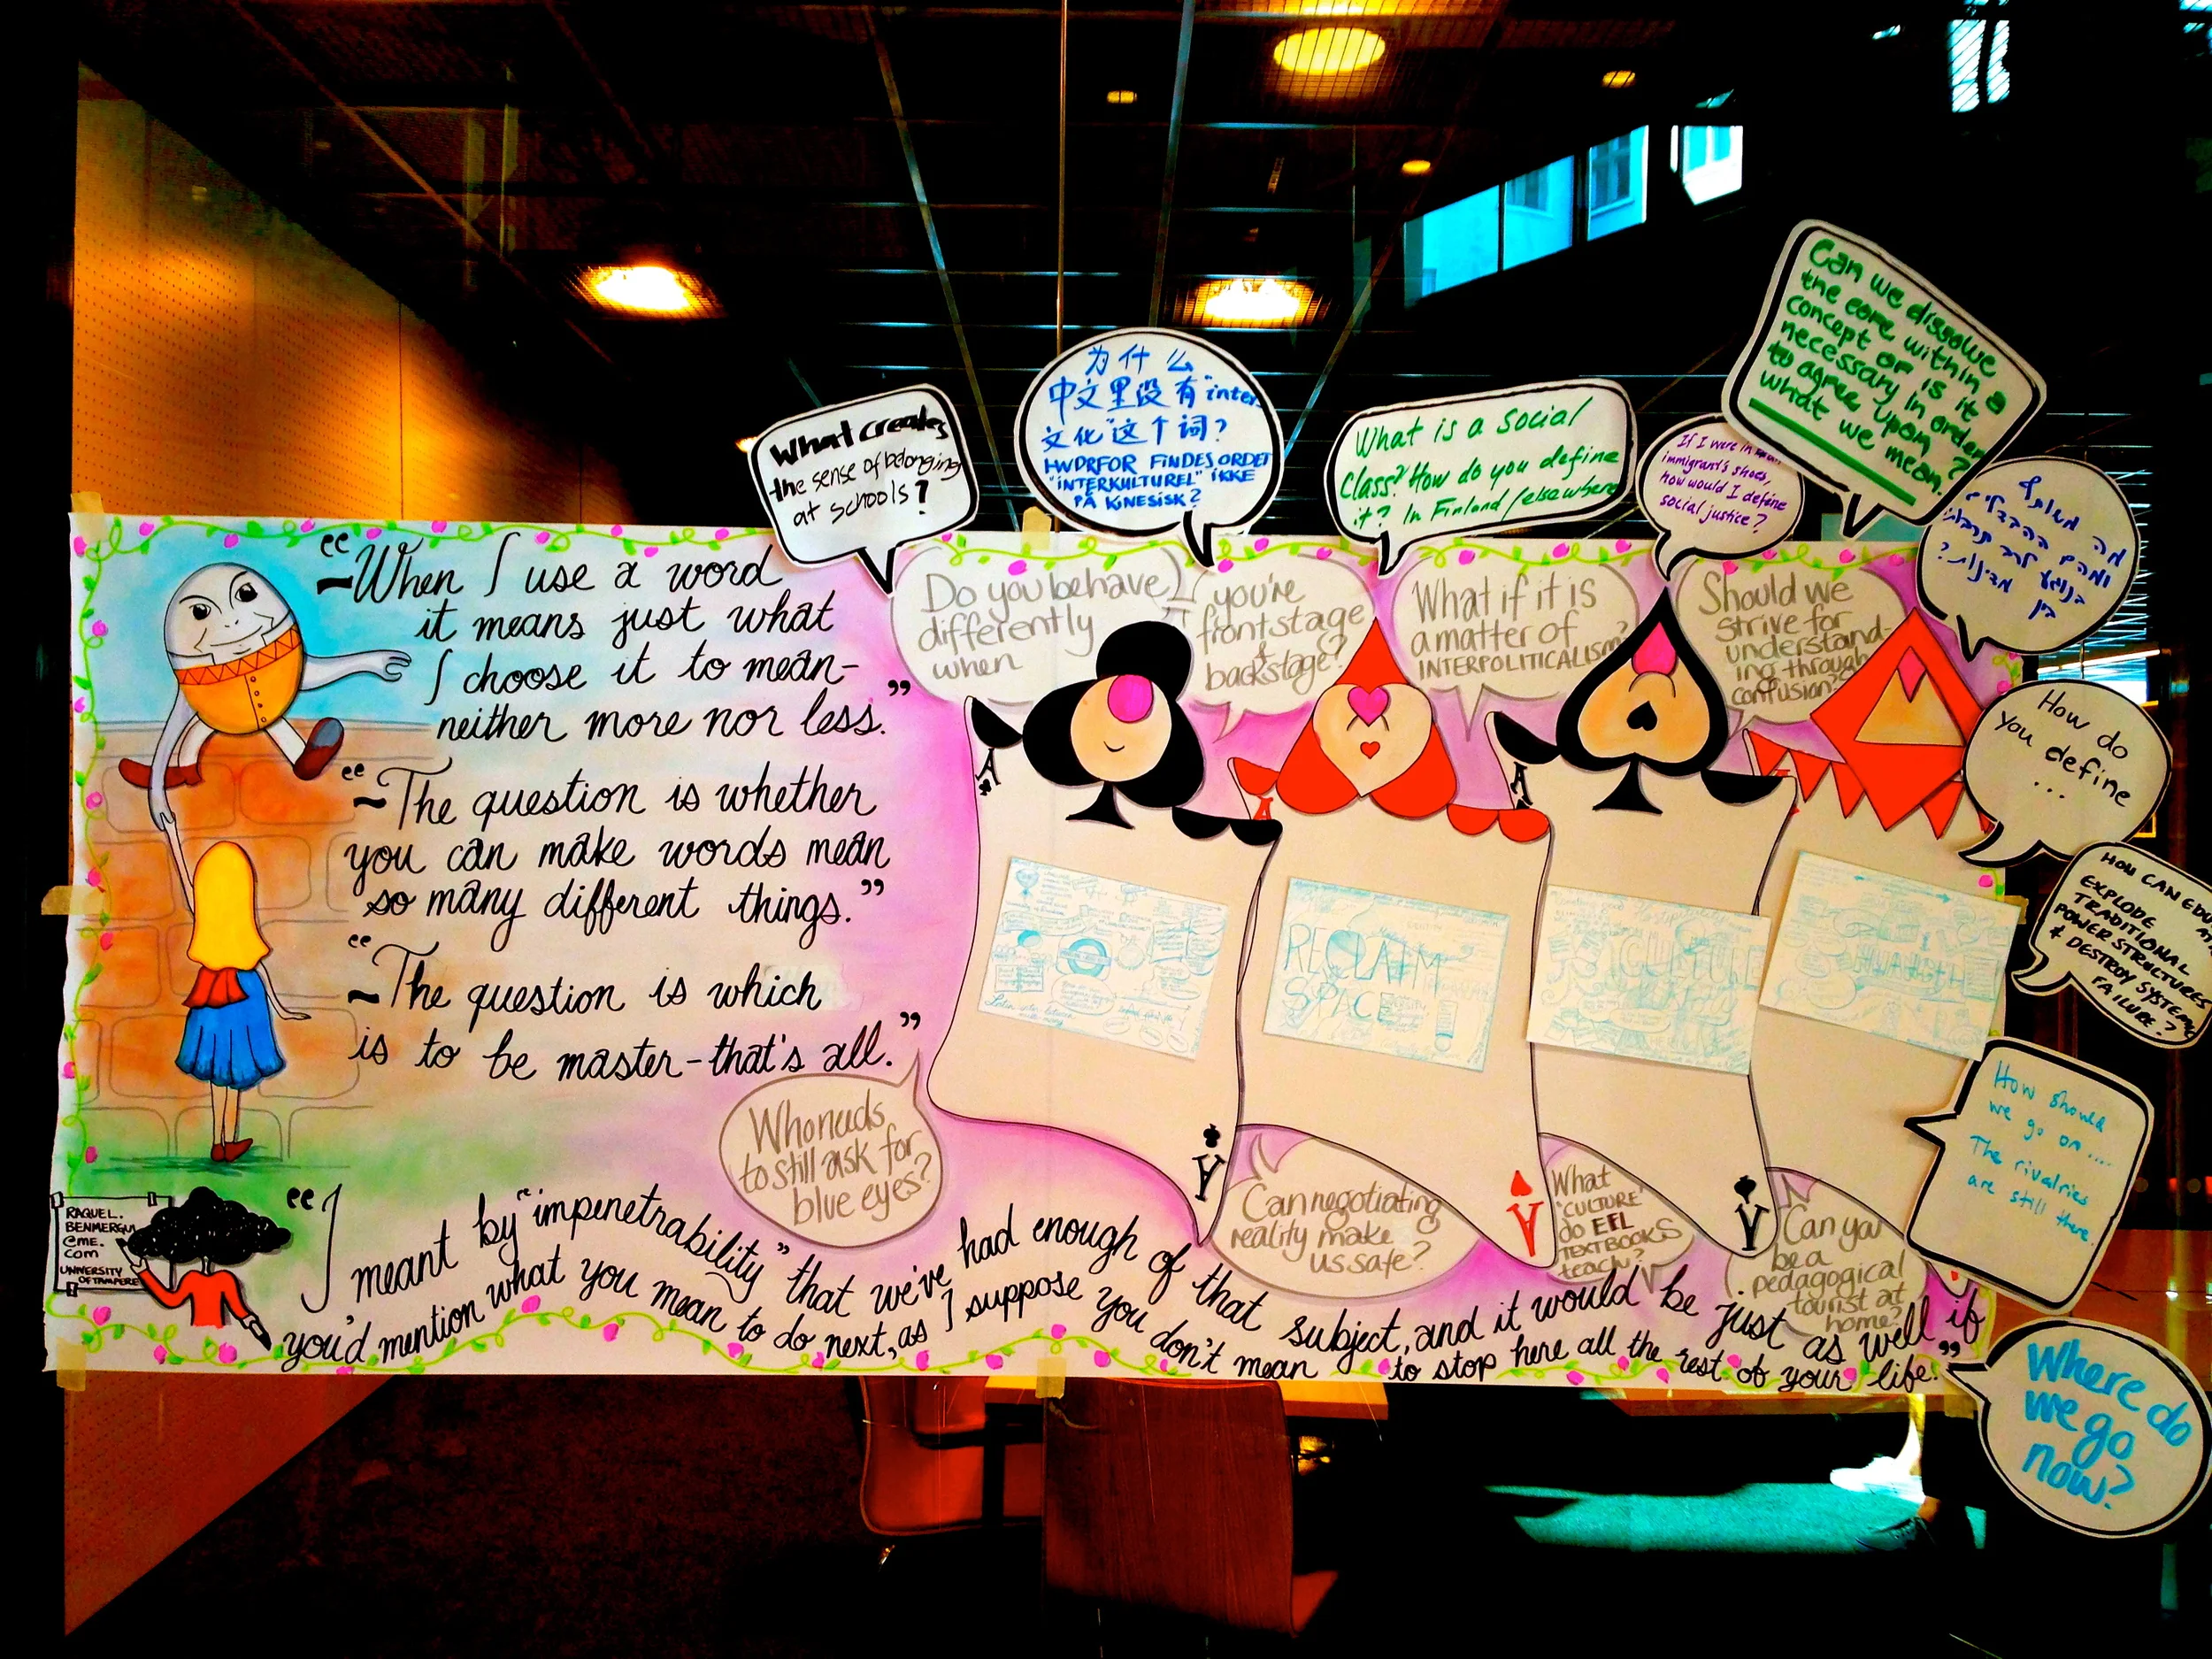 What creates
the sense of belonging
at schools?
为什么
中文里没有"inter
文化"这个词?
HVORFOR FINDES ORDET
"INTERKULTUREL" IKKE
PÅ KINESISK?
What is a social
class? How do you define
it? In Finland/elsewhere
If I were in an
immigrant's shoes,
how would I define
social justice?
Can we dissolve
the core within a
concept or is it
necessary in order
to agree upon
what we mean?
מה משותף
ומהם ההבדלים
בנוגע לרב תרבותי
בין מדינות?
How do
you define
...
HOW CAN EDU
EXPLODE
TRADITIONAL
POWER STRUCTURES
& DESTROY SYSTEMIC
FAILURE?
How should
we go on ....
The rivalries
are still there.
Where do
we go
now?
"-When I use a word
it means just what
I choose it to mean-
neither more nor less."
"-The question is whether
you can make words mean
so many different things."
"-The question is which
is to be master-that's all."
Do you behave
differently
when
you're
frontstage
&
backstage?
What if it is
a matter of
INTERPOLITICALISM?
Should we
strive for
understand-
ing through
confusion?
A
A
A
RECLAIM
SPACE
CULTURE
Who needs
to still ask for
blue eyes?
Can negotiating
reality make
us safe?
What
"CULTURE"
do EFL
TEXTBOOKS
teach?
Can you
be a
pedagogical
tourist at
home?
A
A
A
RAQUEL.
BENMERGUI
@ME.
COM
UNIVERSITY
OF TAMPERE
"I meant by "impenetrability" that we've had enough of that subject, and it would be just as well if
you'd mention what you mean to do next, as I suppose you don't mean to stop here all the rest of your life."